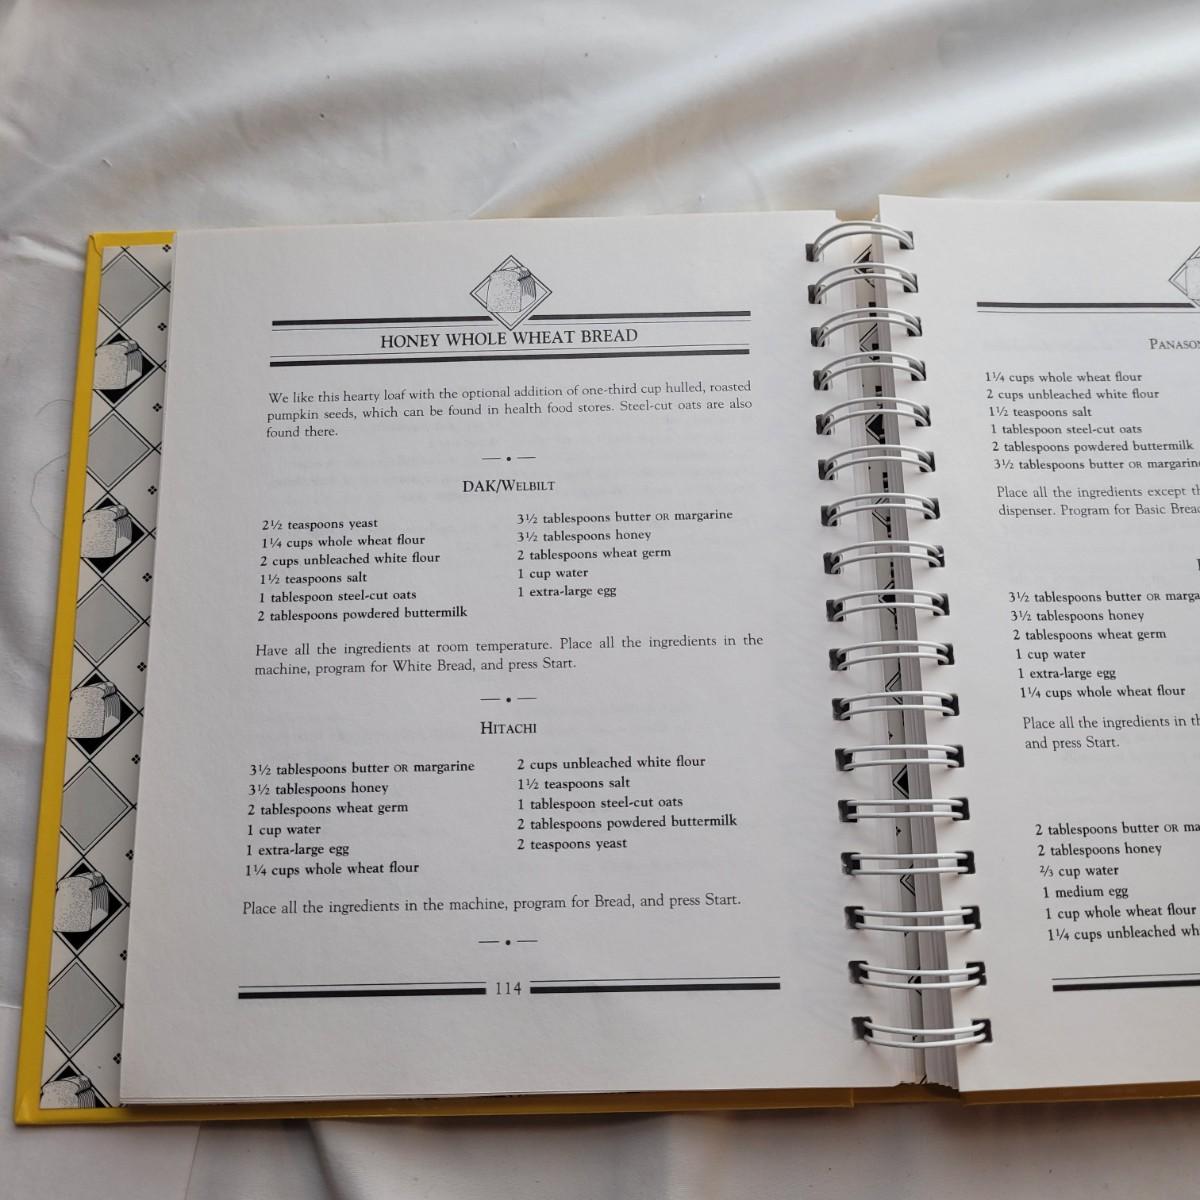 HONEY WHOLE WHEAT BREAD
We like this hearty loaf with the optional addition of one-third cup hulled, roasted
pumpkin seeds, which can be found in health food stores. Steel-cut oats are also
found there.
DAK/WELBILT
2½ teaspoons yeast
1¼ cups whole wheat flour
2 cups unbleached white flour
1½ teaspoons salt
1 tablespoon steel-cut oats
2 tablespoons powdered buttermilk
3½ tablespoons butter OR margarine
3½ tablespoons honey
2 tablespoons wheat germ
1 cup water
1 extra-large egg
Have all the ingredients at room temperature. Place all the ingredients in the
machine, program for White Bread, and press Start.
HITACHI
3½ tablespoons butter OR margarine
3½ tablespoons honey
2 tablespoons wheat germ
1 cup water
1 extra-large egg
1¼ cups whole wheat flour
2 cups unbleached white flour
1½ teaspoons salt
1 tablespoon steel-cut oats
2 tablespoons powdered buttermilk
2 teaspoons yeast
Place all the ingredients in the machine, program for Bread, and press Start.
114
1¼ cups whole wheat flour
2 cups unbleached white flour
1½ teaspoons salt
1 tablespoon steel-cut oats
2 tablespoons powdered buttermilk
3½ tablespoons butter OR
Place all the ingredients except
dispenser. Program for Basic
3½ tablespoons butter OR
3½ tablespoons honey
2 tablespoons wheat germ
1 cup water
1 extra-large egg
1¼ cups whole wheat flour
Place all the ingredients in
and press Start.
2 tablespoons butter OR
2 tablespoons honey
⅔ cup water
1 medium egg
1 cup whole wheat flour
1¼ cups unbleached